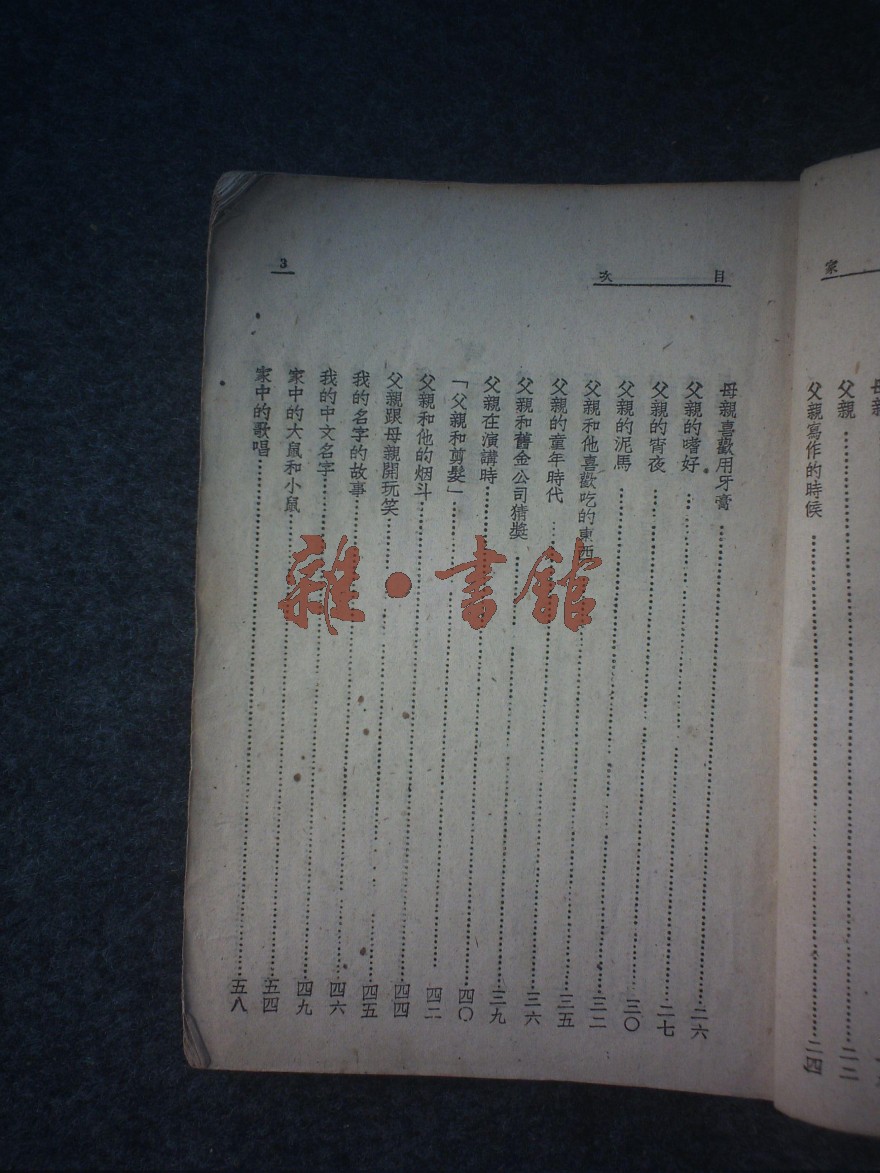 家
父親……二二
父親寫作的時候……二四
目次
母親喜歡用牙膏……二六
父親的嗜好……二七
父親的宵夜……三〇
父親的泥馬……三二
父親和他喜歡吃的東西……三五
父親的童年時代……三六
父親和舊金公司猜獎……三九
父親在演講時……四〇
「父親和剪髮」……四二
父親和他的烟斗……四四
父親跟母親開玩笑……四五
我的名字的故事……四六
我的中文名字……四九
家中的大鼠和小鼠……五四
家中的歌唱……五八
3
雜·書館